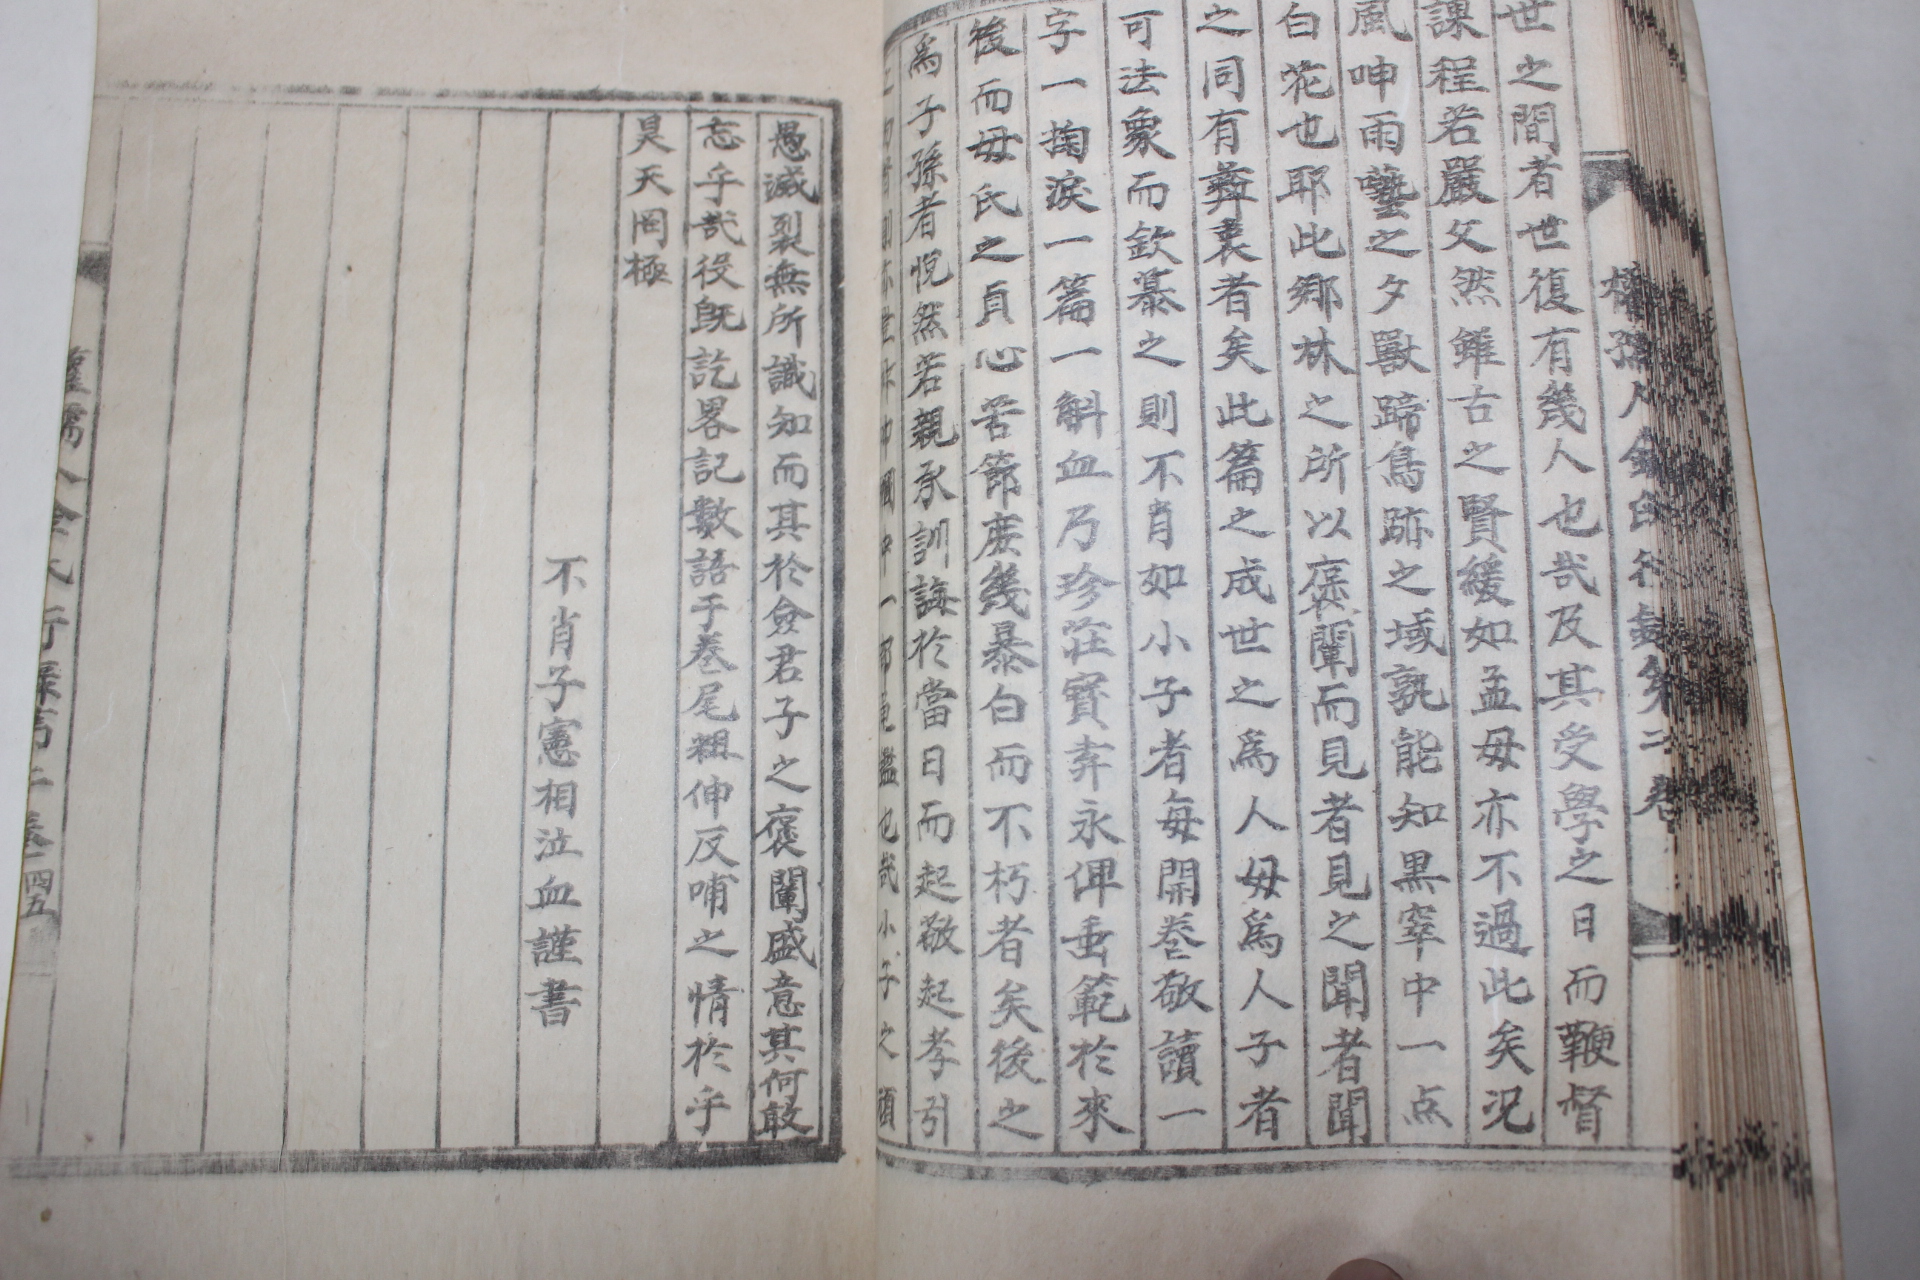 世之間者世復有幾人也哉及其受學之日而鞭督
課程若嚴父然雖古之賢緩如孟母亦不過此矣況
風呻雨藝之夕獸蹄鳥跡之域孰能知黑窣中一点
白花也耶此鄉林之所以褒闡而見者見之聞者聞
之同有彝衷者矣此篇之成世之爲人母爲人子者
可法象而欽慕之則不肖如小子者每開卷敬讀一
字一掬淚一篇一斛血乃珍莊寶弆永俾垂範於來
後而毋氏之貞心苦節庶幾暴白而不朽者矣後之
爲子孫者怳然若親承訓誨於當日而起敬起孝引
哉小子之頑
愚滅裂無所識知而其於僉君子之褒闡盛意其何敢
忘乎哉役旣訖畧記數語于卷尾粗伸反哺之情於乎
昊天罔極
不肖子憲相泣血謹書
孺人金氏行錄
四五